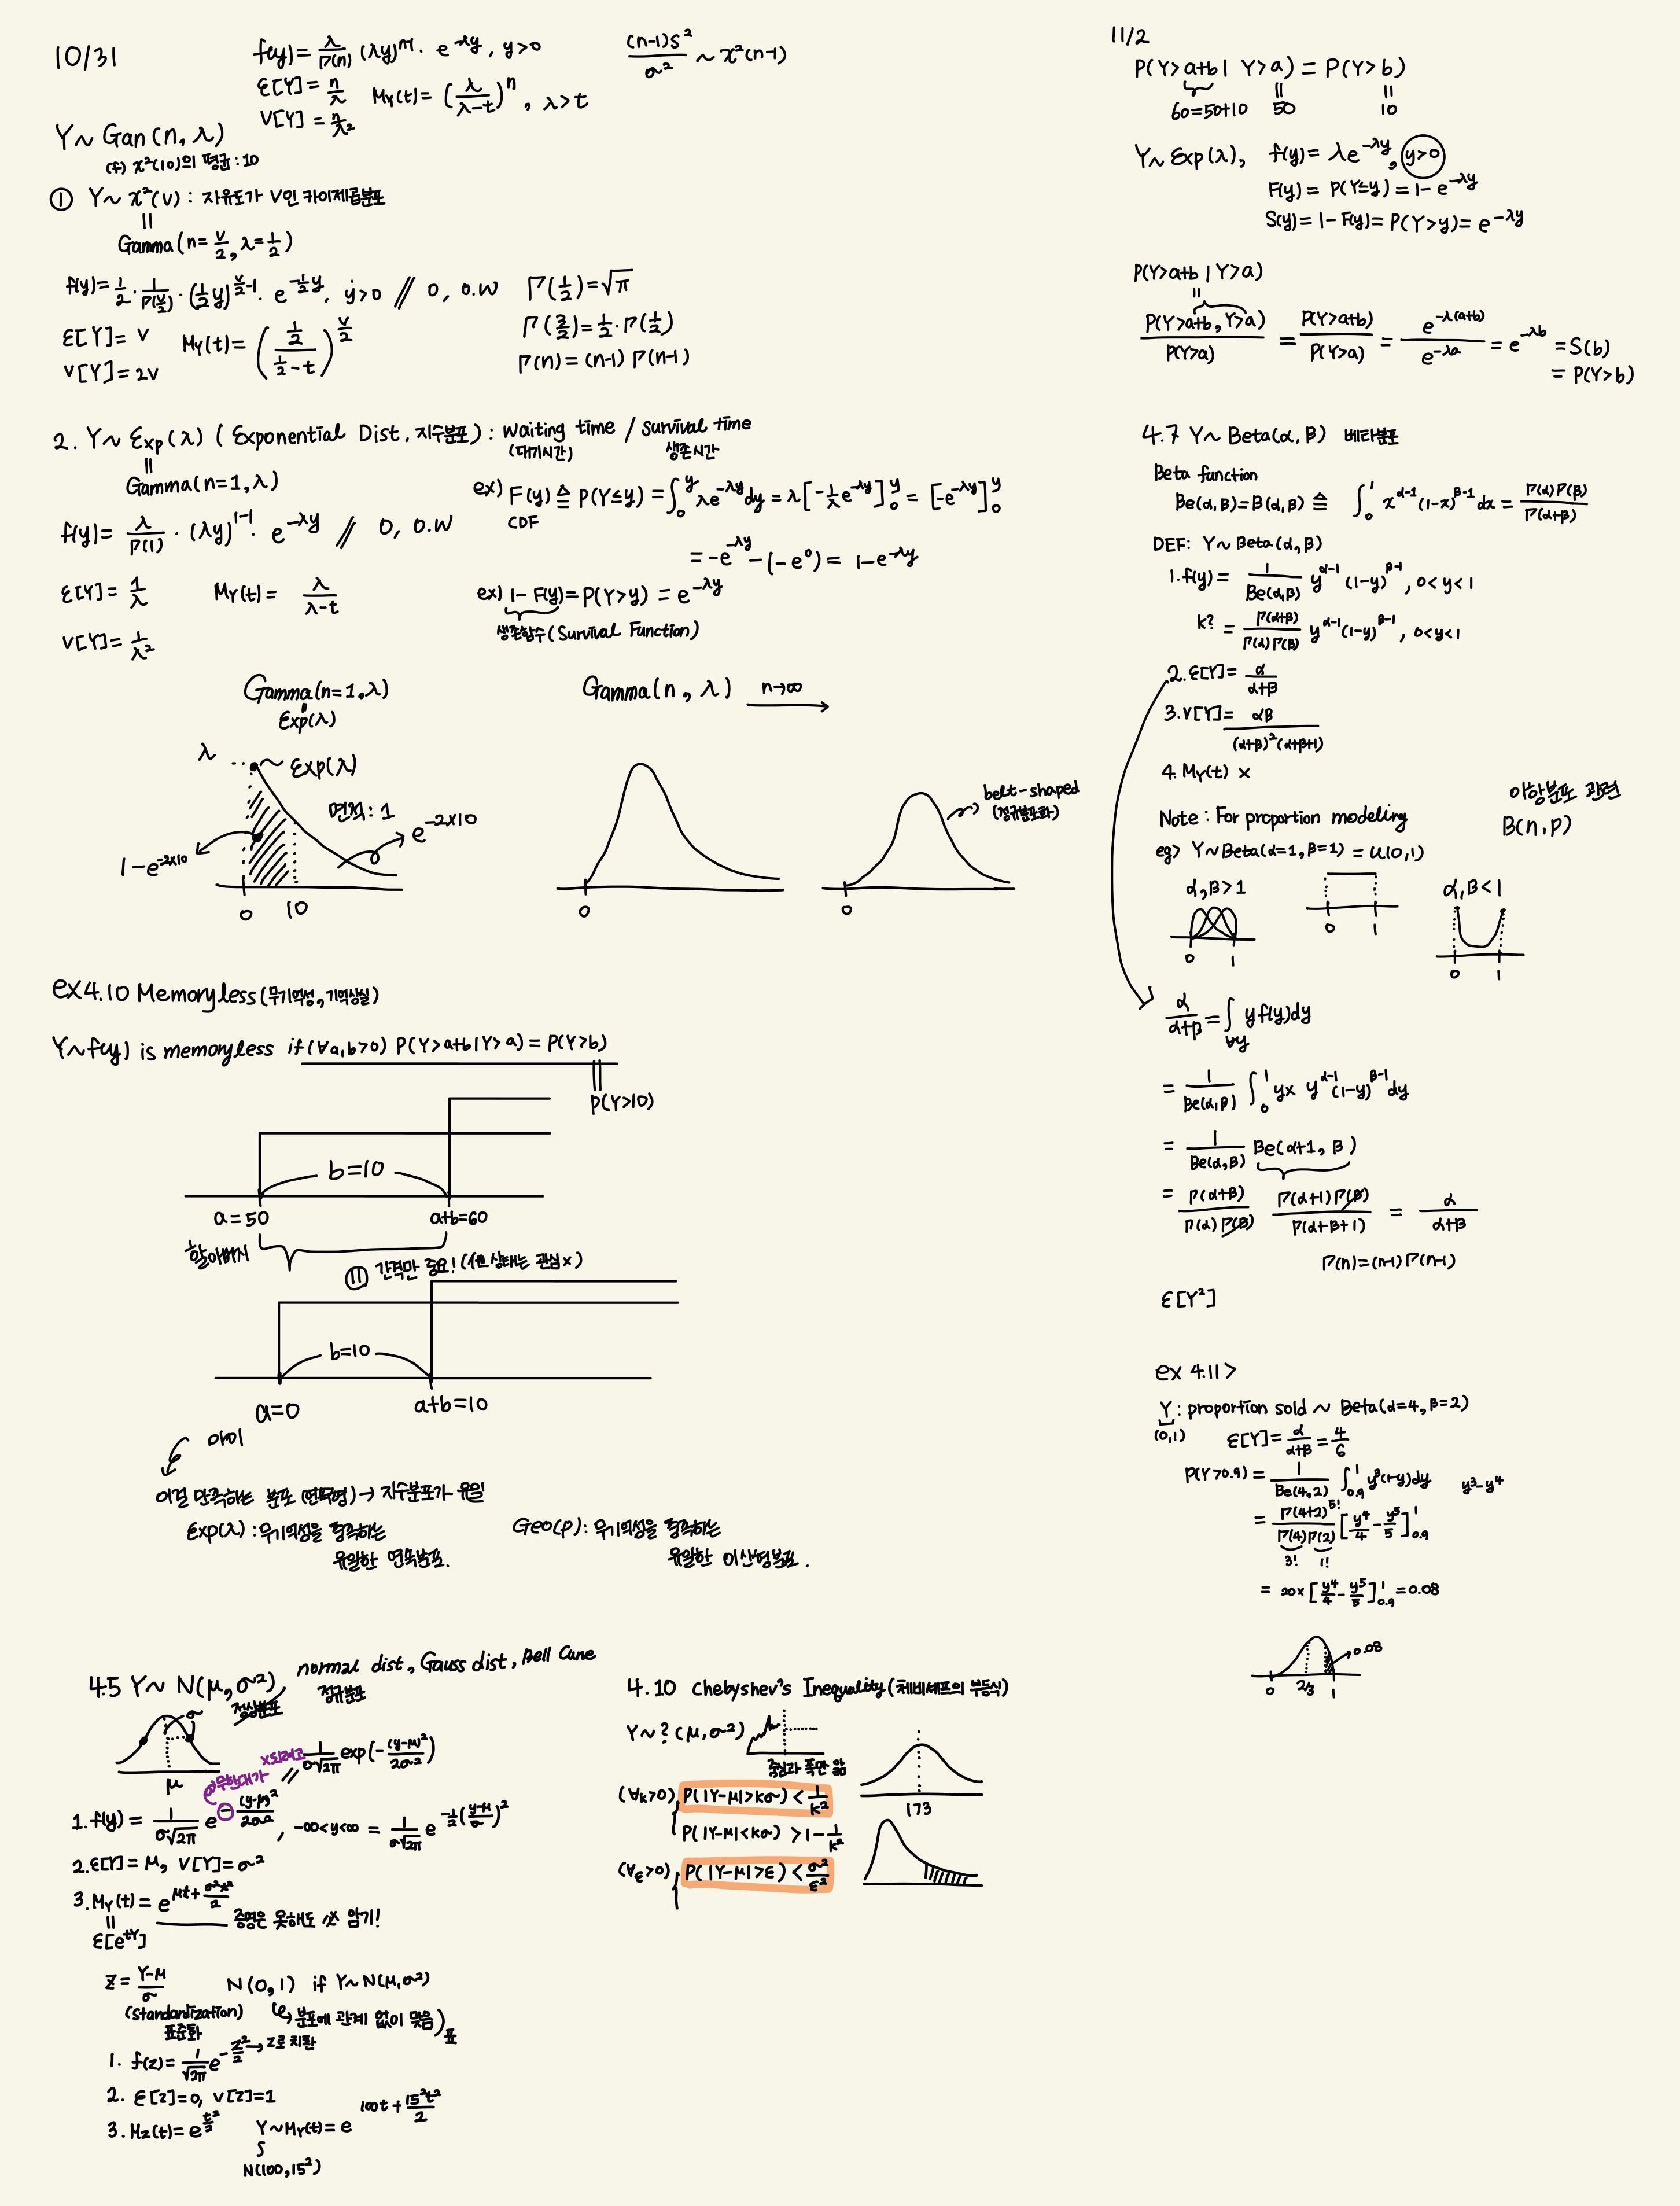 10/31
f(y) = λ/Γ(n) (λy)^{n-1} · e^{-λy}, y>0
(n-1)S²/σ² ~ χ²(n-1)
E[Y] = n/λ
M_Y(t) = (λ/(λ-t))^n, λ>t
V[Y] = n/λ²
Y~ Gam(n, λ)
χ²(10)의 평균: 10
① Y~ χ²(ν) : 자유도가 ν인 카이제곱분포
||
Gamma(n=ν/2, λ=1/2)
f(y) = 1/2 · 1/Γ(ν/2) · (1/2 y)^{ν/2-1} · e^{-1/2 y}, y>0 // 0, o.w
Γ(1/2) = √π
E[Y] = ν
M_Y(t) = ((1/2)/(1/2 - t))^{ν/2}
Γ(3/2) = 1/2 · Γ(1/2)
V[Y] = 2ν
Γ(n) = (n-1) Γ(n-1)
2. Y~ Exp(λ) ( Exponential Dist, 지수분포) : waiting time / survival time
(대기시간) 생존시간
||
Gamma(n=1, λ)
f(y) = λ/Γ(1) · (λy)^{1-1} · e^{-λy} // 0, o.w
ex) F(y) ≙ P(Y≤y) = ∫_0^y λe^{-λy}dy = λ[-1/λ e^{-λy}]_0^y = [-e^{-λy}]_0^y
CDF
= -e^{-λy} - (-e^0) = 1-e^{-λy}
E[Y] = 1/λ
M_Y(t) = λ/(λ-t)
ex) 1- F(y) = P(Y>y) = e^{-λy}
생존함수 (Survival Function)
V[Y] = 1/λ²
Gamma(n=1, λ)
||
Exp(λ)
Gamma(n, λ) n→∞
λ
Exp(λ)
면적: 1
e^{-2×10}
1-e^{-2×10}
0 10
0
belt-shaped
(정규분포화)
0
ex4.10 Memoryless (무기억성, 기억상실)
Y~f(y) is memoryless if (∀a,b>0) P(Y>a+b|Y>a) = P(Y>b)
||
P(Y>10)
b=10
a=50 a+b=60
할아버지
간격만 중요! (현 상태는 관심x)
b=10
a=0 a+b=10
아이
이걸 만족하는 분포 (연속형) → 지수분포가 유일
Exp(λ) : 무기억성을 충족하는
유일한 연속분포.
Geo(p) : 무기억성을 충족하는
유일한 이산형분포.
4.5 Y~ N(μ, σ²) normal dist, Gauss dist, Bell Curve
정상분포 정규분포
σ
μ
무한대가 x되려고
// 1/(σ√2π) exp(-(y-μ)²/2σ²)
1. f(y) = 1/(σ√2π) e^{-(y-μ)²/2σ²}, -∞<y<∞ = 1/(σ√2π) e^{-1/2((y-μ)/σ)²}
2. E[Y] = μ, V[Y] = σ²
3. M_Y(t) = e^{μt+σ²t²/2}
||
E[e^{tY}]
증명은 못해도 암기!
Z = (Y-μ)/σ N(0, 1) if Y~N(μ, σ²)
(standardization)
표준화
분포에 관계 없이 맞음)
표
1. f(z) = 1/√2π e^{-z²/2} → z로 치환
2. E[z]=0, V[z]=1
3. M_Z(t) = e^{t²/2}
Y~M_Y(t) = e^{100t+15²t²/2}
N(100, 15²)
4.10 Chebyshev's Inequality (체비셰프의 부등식)
Y~ ? (μ, σ²)
중심과 폭만 앎
(∀k>0) P(|Y-μ|>kσ) < 1/k²
P(|Y-μ|<kσ) > 1-1/k²
(∀ε>0) P(|Y-μ|>ε) < σ²/ε²
173
11/2
P(Y>a+b | Y>a) = P(Y>b)
|| ||
60=50+10 50 10
Y~ Exp(λ), f(y) = λe^{-λy}, y>0
F(y) = P(Y≤y) = 1-e^{-λy}
S(y) = 1-F(y) = P(Y>y) = e^{-λy}
P(Y>a+b | Y>a)
||
P(Y>a+b, Y>a)/P(Y>a) = P(Y>a+b)/P(Y>a) = e^{-λ(a+b)}/e^{-λa} = e^{-λb} = S(b)
= P(Y>b)
4.7 Y~ Beta(α, β) 베타분포
Beta function
Be(α,β) = B(α,β) ≙ ∫_0^1 x^{α-1}(1-x)^{β-1}dx = Γ(α)Γ(β)/Γ(α+β)
DEF: Y~ Beta(α, β)
1. f(y) = 1/Be(α,β) y^{α-1}(1-y)^{β-1}, 0<y<1
k? = Γ(α+β)/Γ(α)Γ(β) y^{α-1}(1-y)^{β-1}, 0<y<1
2. E[Y] = α/(α+β)
3. V[Y] = αβ/((α+β)²(α+β+1))
4. M_Y(t) x
이항분포 관련
B(n, p)
Note : For proportion modeling
eg> Y~Beta(α=1, β=1) = U(0,1)
α,β>1
0 1
0 1
α,β<1
0 1
α/(α+β) = ∫_{∀y} y f(y)dy
= 1/Be(α,β) ∫_0^1 y× y^{α-1}(1-y)^{β-1}dy
= 1/Be(α,β) Be(α+1, β)
= Γ(α+β)/Γ(α)Γ(β) Γ(α+1)Γ(β)/Γ(α+β+1) = α/(α+β)
Γ(n)=(n-1)Γ(n-1)
E[Y²]
ex 4.11>
Y : proportion sold ~ Beta(α=4, β=2)
(0,1)
E[Y] = α/(α+β) = 4/6
P(Y>0.9) = 1/Be(4,2) ∫_{0.9}^1 y³(1-y)dy y³-y⁴
= Γ(4+2)/Γ(4)Γ(2) [y⁴/4 - y⁵/5]_{0.9}^1
5!
3! 1!
= 20× [y⁴/4 - y⁵/5]_{0.9}^1 = 0.08
0.08
0 2/3 1